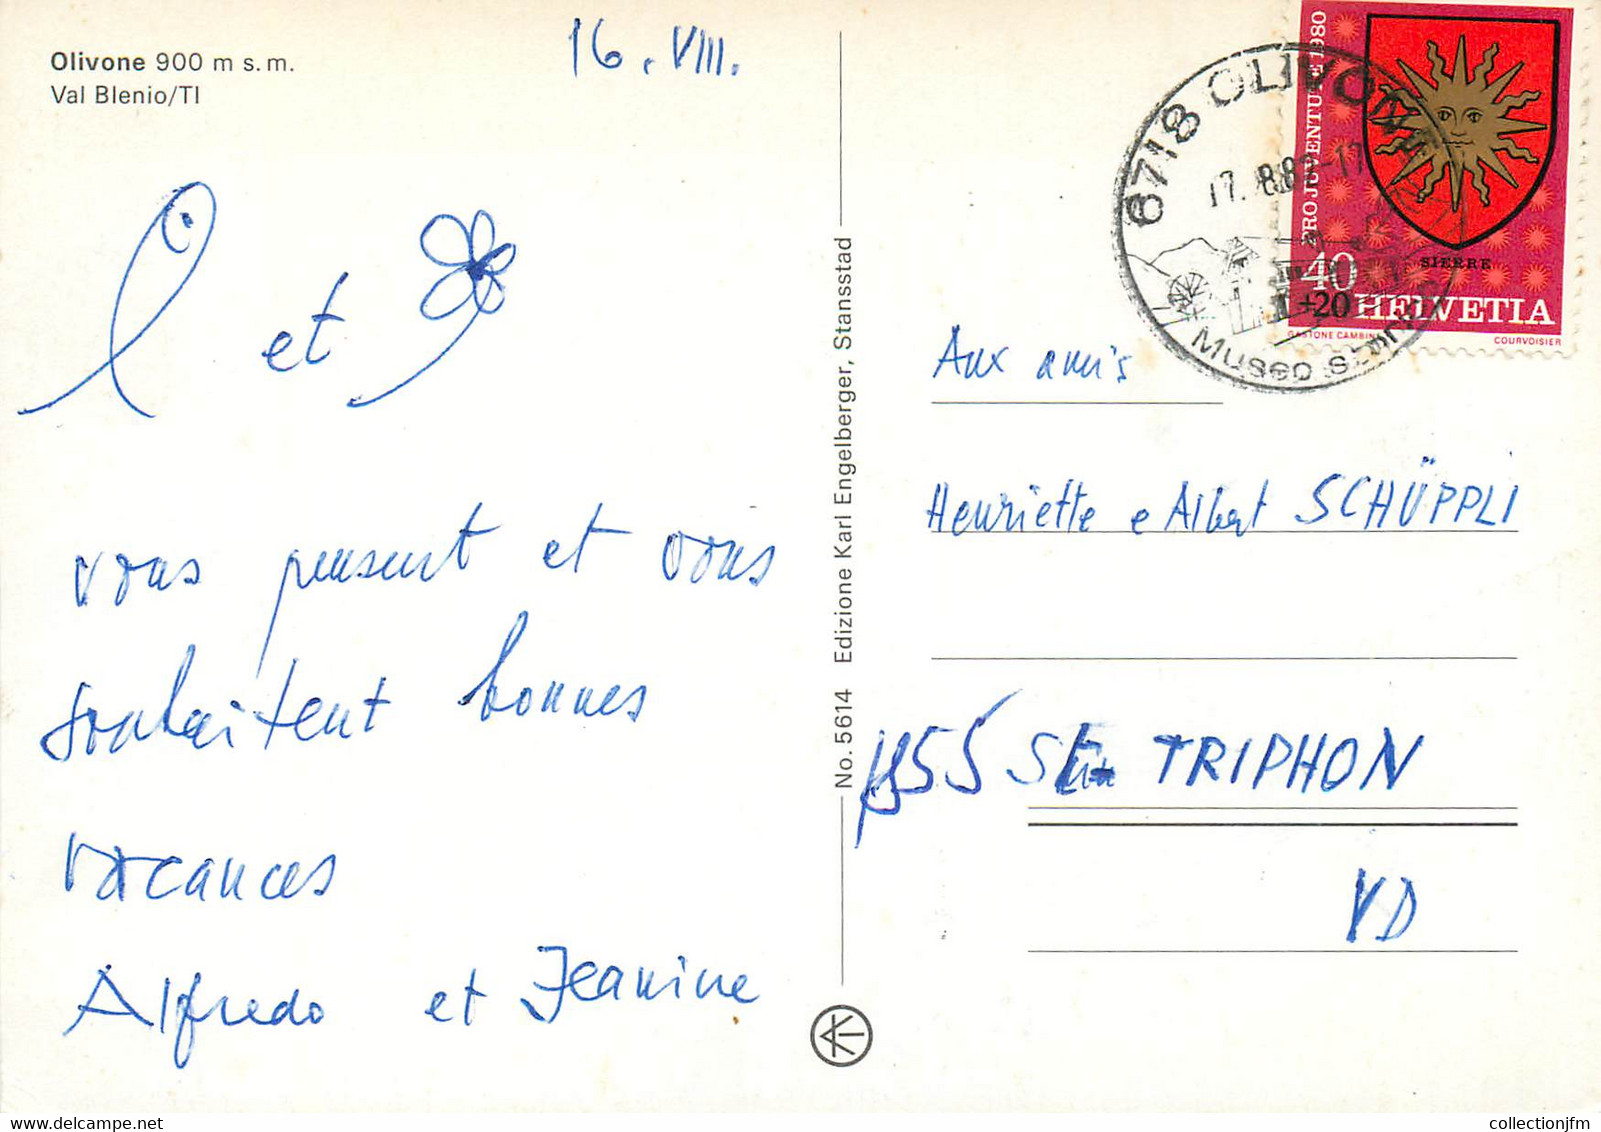 Olivone 900 m s.m.
Val Blenio/TI
16. VIII.
et
vous pensent et vous
souhaitent bonnes
vacances
Alfredo et Jeanine
No. 5614 Edizione Karl Engelberger, Stansstad
6718 OLIVONE
17. 8.8
Museo
PRO JUVENTUTE 1980
SIERRE
40
+20 HELVETIA
GASTONE CAMBIN
COURVOISIER
Aux amis
Henriette e Albert SCHÜPPLI
1855 St- TRIPHON
VD
collectionjfm